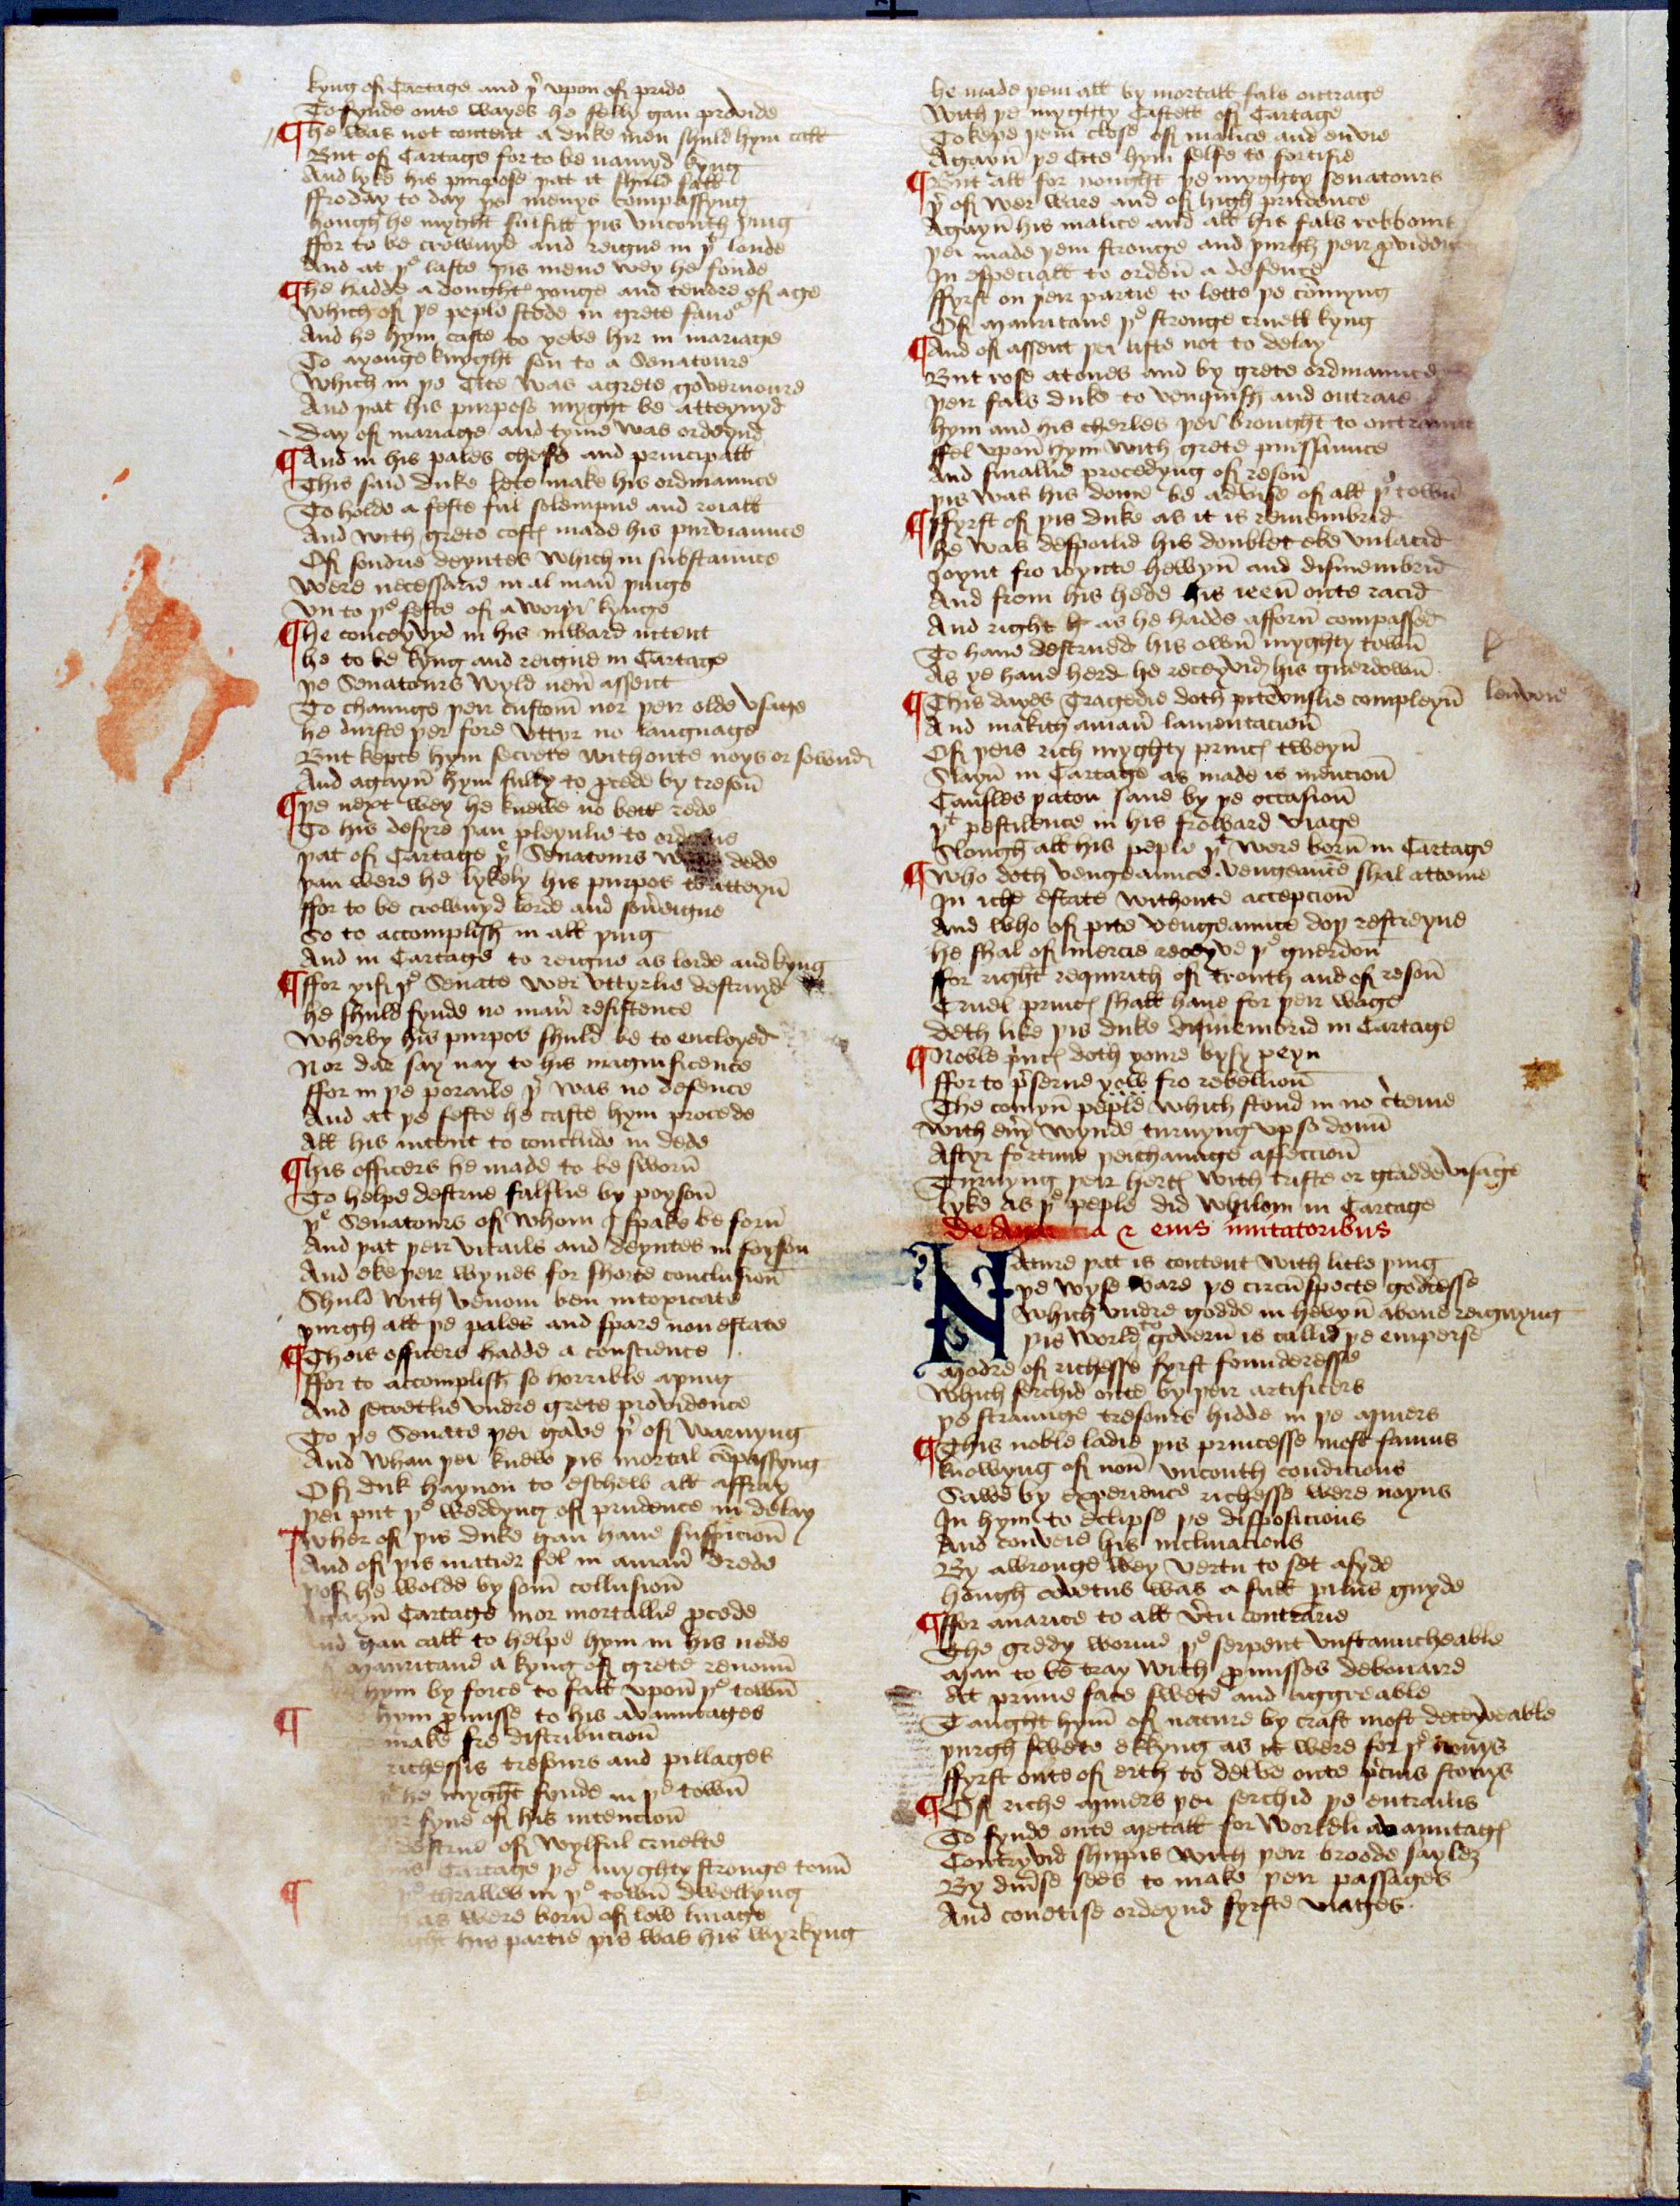 kyng of Cartage and þͬ upon of pride
To fynde oute wayes he felly gan provide
¶ he was not content a duke men shuld hym call
But of Cartage for to be namyd kyng
And lyke his purpose þat it shuld fall
ffro day to day þe menys compassyng
hough he myght fulfill þis uncouth þing
ffor to be crownyd and reigne in þͭ londe
And at þͤ laste þis mene wey he fonde
¶ he hadde a doughtͬ yonge and tendre of age
Which of þe peple stode in grete favoͬ
And he hym caste to yeve hir in mariage
To a yonge knyght son to a Senatoure
Which in þe Cite was a grete governoure
And þat his purpose myght be atteynyd
Day of mariage and tyme was ordeynd
¶ And in his pales chefe and principall
This said duke lete make his ordinaunce
To holde a feste ful solempne and roiall
And with grete cost made his purviaunce
Of sondrie deyntes which in substaunce
Were necessarie in al maner þinge
Un to þͤ feste of a worþi kynge
¶ he conceyvyd in his inward intent
he to be kyng and reigne in Cartage
þe Senatours wyld nevͬ assent
To chaunge þeir custom nor þeir olde usage
he durste þer fore uttyr no langnage
But kepte hym secrete withoute noys or sownde
And agayn hym fully to pcede by treson
¶ þe next wey he knewe no bettͬ rede
To his desyre þan pleynlie to ordeyne
þat of Cartage þͤ Senatours were dede
þan were he lykely his purpos to atteyn
ffor to be crownyd lorde and sovereigne
So to accomplish in all þing
And in Cartage to reigne as lorde and kyng
¶ ffor yif þͤ Senate wer uttyrlie destruyd
he shuld fynde no manͬ resistence
Wherby his purpos shuld be to encloyed
Nor dar say nay to his magnificence
ffor in þe poraile þͬ was no defence
And at þe feste he caste hym procede
All his intent to conclude in dede
¶ his officers he made to be sworn
To helpe destrue falslie by poyson
þͤ Senatours of whom I spake be forn
And þat þeir vitails and deyntes in foyson
And eke þeir wynes for shorte conclusion
Shuld with venom ben intoxicate
þurgh all þe pales and spare non estate
¶ Thois officers hadde a conscience
ffor to accomplish so horrible a þing
And secretlie undre grete providence
To þe Senate þei gave þͬ of warnyng
And whan þei knew þis mortal cōpassyng
Of duk haynon to eschew all affray
þei put þͤ weddyng of prudence in delay
¶ Wher of þis duke gan have suspicion
And of þis matier fel in a manͬ drede
þof he wolde by som collusion
Agayn Cartage mor mortallie pcede
And gan call to helpe hym in his nede
Mauritane a kyng of grete renoun
hym by force to fall upon þͤ town
¶ hym pmisse to his avauntages
make fre distribucion
richessis tresours and pillages
þͭ he myght fynde in þͤ town
fyne of his intencion
destrue of wylful cruelte
Cartage þe myghty stronge toun
¶ þͤ thralles in þͤ town dwellyng
as were born of low linage
his partie þis was his wyrkyng
he made þem all by mortall fals outrage
With þe myghty Castell of Cartage
To kepe þem close of malice and envie
Agayn þe Cite hym selfe to fortifie
¶ But all for nought þe myghty senatours
þͭ of wer ware and of high prudence
Agayn his malice and all his fals
þei made þem stronge and þurgh þeir
In especiall to orden a defence
ffyrst on þeir partie to lette þe comyng
Of Mauritane þͤ stronge cruell kyng
¶ And of assent þei liste not to delay
But rose atones and by grete ordinaunce
þeir fals duke to venquish and outraie
hym and his cherles þei brought to
ffel upon hym with grete puissaunce
And finallie procedyng of reson
þis was his dome be advise of all þͤ town
¶ ffyrst of þis duke as it is remembrid
he was despoilid his doublet eke unlacid
Joynt fro ioynte hewyn and dismembrid
And from his hede his ieen oute racid
And right as he hadde afforn compassed
To have destrued his own myghty town
As ye have herd he receyvid his guerdown
¶ This dayes Tragedie doth pitevuslie compleyn lenvoie
And makith a manͬ lamentacion
Of þeis rich myghty princͤ tweyn
Slayn in Cartage as made is mencion
Causles þaton save by þe occasion
þͭ pestilence in his froward viage
Slough all his peple þͭ were born in Cartage
¶ Who doth vengeaunce vengeaunce shal attame
In iche estate withoute accepcion
And who of pite vengeaunce doþ restreyne
he shal of mercie receyve þͤ guerdon
ffor right requirith of trouth and of reson
Cruel princͤ shall have for þeir wage
Deth like þis duke dismembrid in Cartage
¶ Noble princͤ doth youre bysy peyn
ffor to pserve yow fro rebellion
The comyn peple which stond in no cͬteine
With evͬy wynde turnyng up so doun
Aftyr fortune þei chaunge affeccion
Turnyng þeir hertͤ with triste or gladde visage
Lyke as þͤ peple did whilom in Cartage
De a & eius imitatoribus
Nature þat is content with litle þing
þe wyse ware þe circūspecte goddesse
Which undre godde in hevyn above reignyng
þis world to govern is callid þe emperse
Modre of richesse fyrst founderesse
Which serchid oute by þeir artificers
þe straunge tresours hidde in þe myners
¶ This noble ladie þis princesse most famus
knowyng of non uncouth condicions
Sawe by experience richesse were noyus
In hym to eclipse þe disposicions
And conveie his inclinacions
By a wronge wey vertu to set asyde
hough covetus was a full pilus guyde
¶ ffor avarice to all vͬtu contrarie
The gredy worme þͤ serpent unstauncheable
Man to be tray with pmisses debonaire
At prime face swete and aggreable
Taught hym of nature by craft most deceyveable
þurgh swete ekkyng as it were for þͤ nonys
ffyrst oute of erth to delve oute pͬcius stonys
¶ Of riche myners þei serchid þe entrailis
To fynde oute Metall for worldli avauntagͤ
Contryvid shippis with þeir broode saylez
By divͬse sees to make þeir passages
And covetise ordeynd fyrste viages